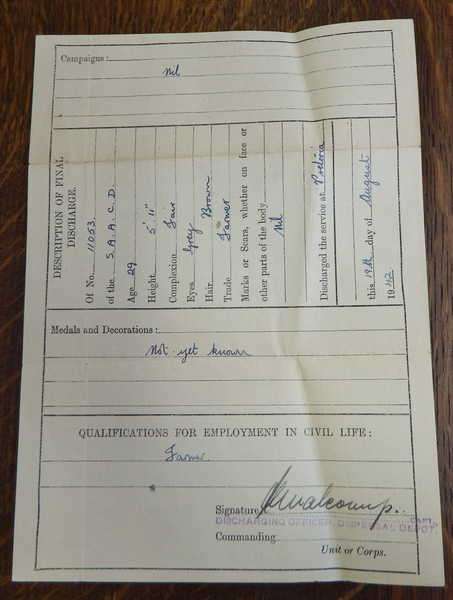 Campaigns:
Nil
DESCRIPTION OF FINAL
DISCHARGE.
Of No. 11053
of the S.A.A.C.D.
Age 29
Height 5' 11"
Complexion Fair
Eyes Grey
Hair Brown
Trade Farmer
Marks or Scars, whether on face or
other parts of the body
Nil
Discharged the service at Pretoria
this 19th day of August
1942
Medals and Decorations:
Not yet known
QUALIFICATIONS FOR EMPLOYMENT IN CIVIL LIFE:
Farmer
Signature
DISCHARGING OFFICER, DISPERSAL DEPOT.
Commanding
Unit or Corps.